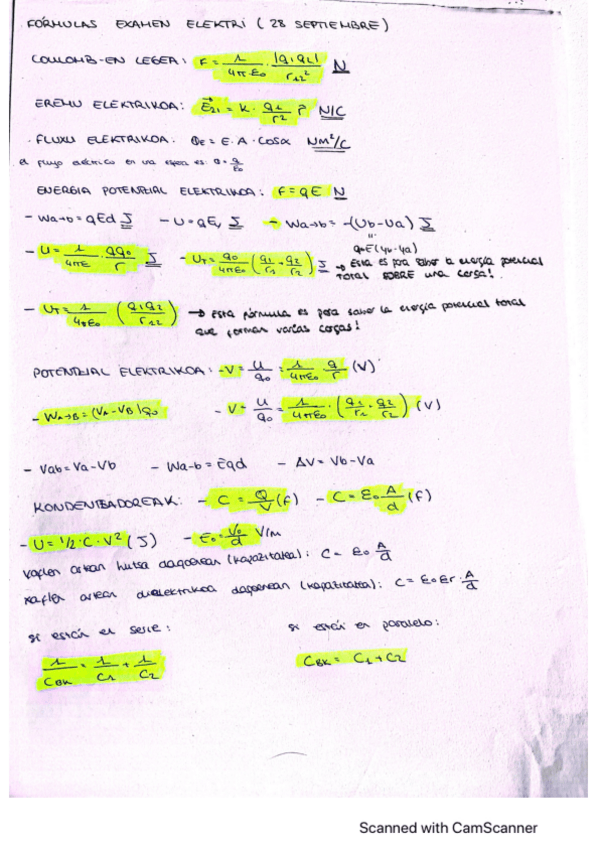 FÓRMULAS EXAMEN ELEKTRI (28 SEPTIEMBRE)
COULOMB-EN LEGEA: F = 1/4πε₀ · |q₁q₂|/r₁₂² N
EREMU ELEKTRIKOA: E⃗₂₁ = K · q₁/r² r⃗ N/C
· FLUXU ELEKTRIKOA: Φe = E · A · cosα Nm²/C
el flujo eléctrico en una esfera es: Φ = q/ε₀
ENERGIA POTENTZIAL ELEKTRIKOA: F = qE N
- Wa→b = qEd J - U = qEy J → Wa→b = -(Ub - Ua) J
qE(yb-ya)
- U = 1/4πε · qq₀/r J - UT = q₀/4πε₀ (q₁/r₁ + q₂/r₂) J → Esta es para saber la energía potencial
total SOBRE una carga!
- UT = 1/4πε₀ (q₁q₂/r₁₂) → esta fórmula es para saber la energía potencial total
que forman varias cargas!
POTENTZIAL ELEKTRIKOA: - V = U/q₀ = 1/4πε₀ q/r (V)
- WA→B = (VA - VB)q₀ - V = U/q₀ = 1/4πε₀ · (q₁/r₁ · q₂/r₂) (V)
- Vab = Va - Vb - Wa-b = Eqd - ΔV = Vb - Va
KONDENTSADOREAK: - C = Q/V (F) - C = ε₀ A/d (F)
- U = 1/2 · C · V² (J) - E₀ = V₀/d V/m
xaflen artean hutsa dagoenean (kapazitatea): C = ε₀ A/d
xaflen artean dielektrikoa dagoenean (kapazitatea): C = ε₀εr · A/d
si están en serie: si están en paralelo:
1/CBK = 1/C₁ + 1/C₂ CBK = C₁ + C₂
Scanned with CamScanner